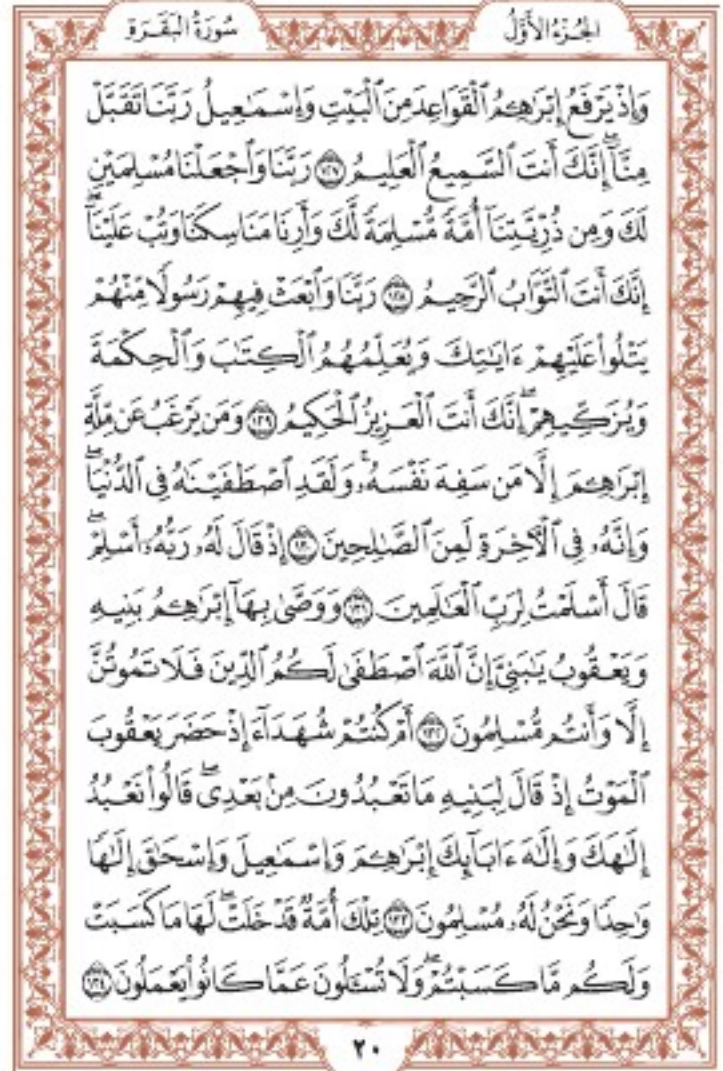 الجُزْءُ الأَوَّلُ
سُورَةُ البَقَرَةِ
وَإِذْ يَرْفَعُ إِبْرَٰهِـۧمُ ٱلْقَوَاعِدَ مِنَ ٱلْبَيْتِ وَإِسْمَٰعِيلُ رَبَّنَا تَقَبَّلْ
مِنَّآ ۖ إِنَّكَ أَنتَ ٱلسَّمِيعُ ٱلْعَلِيمُ ١٢٧ رَبَّنَا وَٱجْعَلْنَا مُسْلِمَيْنِ
لَكَ وَمِن ذُرِّيَّتِنَآ أُمَّةً مُّسْلِمَةً لَّكَ وَأَرِنَا مَنَاسِكَنَا وَتُبْ عَلَيْنَآ ۖ
إِنَّكَ أَنتَ ٱلتَّوَّابُ ٱلرَّحِيمُ ١٢٨ رَبَّنَا وَٱبْعَثْ فِيهِمْ رَسُولًا مِّنْهُمْ
يَتْلُوا۟ عَلَيْهِمْ ءَايَٰتِكَ وَيُعَلِّمُهُمُ ٱلْكِتَٰبَ وَٱلْحِكْمَةَ
وَيُزَكِّيهِمْ ۚ إِنَّكَ أَنتَ ٱلْعَزِيزُ ٱلْحَكِيمُ ١٢٩ وَمَن يَرْغَبُ عَن مِّلَّةِ
إِبْرَٰهِـۧمَ إِلَّا مَن سَفِهَ نَفْسَهُۥ ۚ وَلَقَدِ ٱصْطَفَيْنَٰهُ فِى ٱلدُّنْيَا ۖ
وَإِنَّهُۥ فِى ٱلْءَاخِرَةِ لَمِنَ ٱلصَّٰلِحِينَ ١٣٠ إِذْ قَالَ لَهُۥ رَبُّهُۥٓ أَسْلِمْ ۖ
قَالَ أَسْلَمْتُ لِرَبِّ ٱلْعَٰلَمِينَ ١٣١ وَوَصَّىٰ بِهَآ إِبْرَٰهِـۧمُ بَنِيهِ
وَيَعْقُوبُ يَٰبَنِىَّ إِنَّ ٱللَّهَ ٱصْطَفَىٰ لَكُمُ ٱلدِّينَ فَلَا تَمُوتُنَّ
إِلَّا وَأَنتُم مُّسْلِمُونَ ١٣٢ أَمْ كُنتُمْ شُهَدَآءَ إِذْ حَضَرَ يَعْقُوبَ
ٱلْمَوْتُ إِذْ قَالَ لِبَنِيهِ مَا تَعْبُدُونَ مِنۢ بَعْدِى ۖ قَالُوا۟ نَعْبُدُ
إِلَٰهَكَ وَإِلَٰهَ ءَابَآئِكَ إِبْرَٰهِـۧمَ وَإِسْمَٰعِيلَ وَإِسْحَٰقَ إِلَٰهًا
وَٰحِدًا وَنَحْنُ لَهُۥ مُسْلِمُونَ ١٣٣ تِلْكَ أُمَّةٌ قَدْ خَلَتْ ۖ لَهَا مَا كَسَبَتْ
وَلَكُم مَّا كَسَبْتُمْ ۖ وَلَا تُسْـَٔلُونَ عَمَّا كَانُوا۟ يَعْمَلُونَ ١٣٤
٢٠